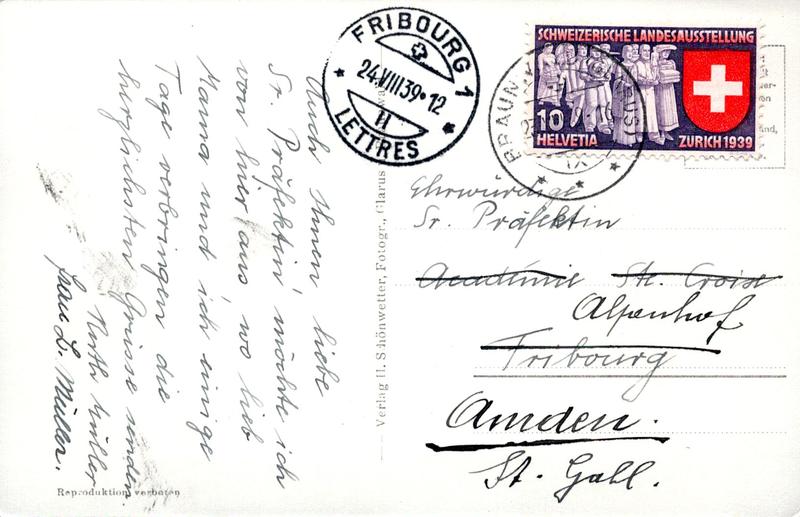 Auch Ihnen liebe
Sr. Präfektin, möchte ich
von hier aus, wo lieb
Mama und ich einige
Tage verbringen die
herzlichsten Grüsse senden.
Müller
Frau L. Müller.
Reproduktion verboten
Verlag H. Schönwetter, Fotogr., Glarus
FRIBOURG 1
24.VIII39•12
LETTRES
SCHWEIZERISCHE LANDESAUSSTELLUNG
10
HELVETIA
ZURICH 1939
BRAUN
Ehrwürdige
Sr. Präfektin
Académie Ste. Croix
Alpenhof
Fribourg
Amden.
St. Gall.